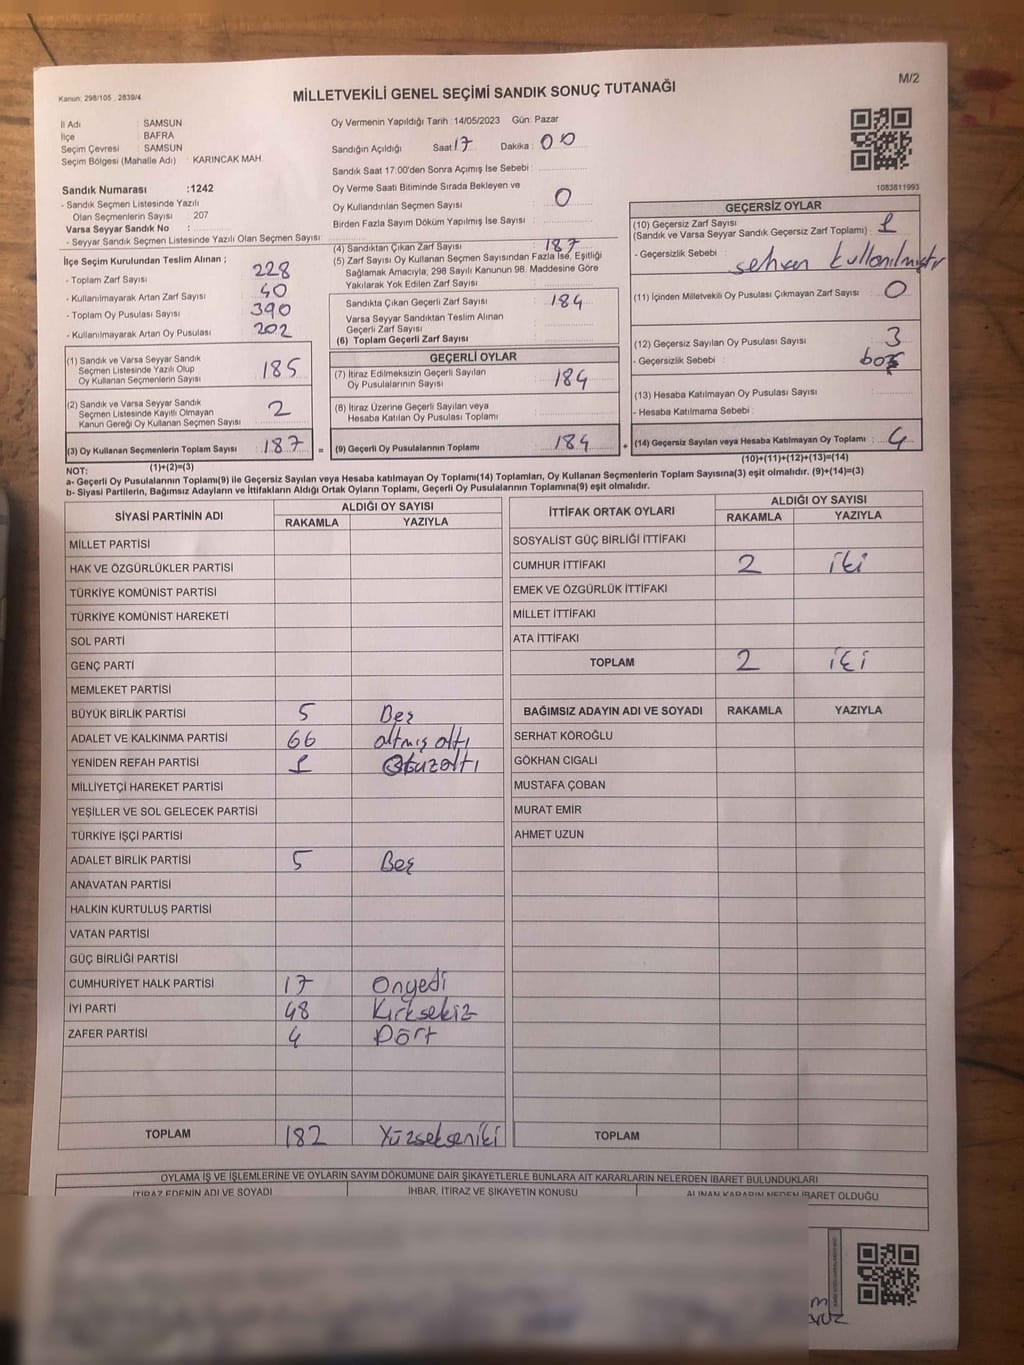 M/2
Kanun: 298/105 , 2839/4
MİLLETVEKİLİ GENEL SEÇİMİ SANDIK SONUÇ TUTANAĞI
İl Adı : SAMSUN
İlçe : BAFRA
Seçim Çevresi : SAMSUN
Seçim Bölgesi (Mahalle Adı) : KARINCAK MAH.
Sandık Numarası :1242
- Sandık Seçmen Listesinde Yazılı
Olan Seçmenlerin Sayısı : 207
Varsa Seyyar Sandık No :
- Seyyar Sandık Seçmen Listesinde Yazılı Olan Seçmen Sayısı:
İlçe Seçim Kurulundan Teslim Alınan ;
- Toplam Zarf Sayısı : 228
- Kullanılmayarak Artan Zarf Sayısı : 40
- Toplam Oy Pusulası Sayısı : 390
- Kullanılmayarak Artan Oy Pusulası : 202
(1) Sandık ve Varsa Seyyar Sandık
Seçmen Listesinde Yazılı Olup
Oy Kullanan Seçmenlerin Sayısı : 185
(2) Sandık ve Varsa Seyyar Sandık
Seçmen Listesinde Kayıtlı Olmayan
Kanun Gereği Oy Kullanan Seçmen Sayısı : 2
(3) Oy Kullanan Seçmenlerin Toplam Sayısı : 187
(1)+(2)=(3)
Oy Vermenin Yapıldığı Tarih : 14/05/2023 Gün: Pazar
Sandığın Açıldığı Saat: 17 Dakika : 00
Sandık Saat 17:00'den Sonra Açımış İse Sebebi :
Oy Verme Saati Bitiminde Sırada Bekleyen ve
Oy Kullandırılan Seçmen Sayısı : 0
Birden Fazla Sayım Döküm Yapılmış İse Sayısı :
(4) Sandıktan Çıkan Zarf Sayısı : 187
(5) Zarf Sayısı Oy Kullanan Seçmen Sayısından Fazla İse, Eşitliği
Sağlamak Amacıyla, 298 Sayılı Kanunun 98. Maddesine Göre
Yakılarak Yok Edilen Zarf Sayısı :
Sandıkta Çıkan Geçerli Zarf Sayısı : 184
Varsa Seyyar Sandıktan Teslim Alınan
Geçerli Zarf Sayısı :
(6) Toplam Geçerli Zarf Sayısı :
GEÇERLİ OYLAR
(7) İtiraz Edilmeksizin Geçerli Sayılan
Oy Pusulalarının Sayısı : 184
(8) İtiraz Üzerine Geçerli Sayılan veya
Hesaba Katılan Oy Pusulası Toplamı :
= (9) Geçerli Oy Pusulalarının Toplamı : 184
1083811993
GEÇERSİZ OYLAR
(10) Geçersiz Zarf Sayısı
(Sandık ve Varsa Seyyar Sandık Geçersiz Zarf Toplamı) : 1
- Geçersizlik Sebebi : sehven kullanılmıştır
(11) İçinden Milletvekili Oy Pusulası Çıkmayan Zarf Sayısı : 0
(12) Geçersiz Sayılan Oy Pusulası Sayısı : 3
- Geçersizlik Sebebi : boş
(13) Hesaba Katılmayan Oy Pusulası Sayısı :
- Hesaba Katılmama Sebebi :
+ (14) Geçersiz Sayılan veya Hesaba Katılmayan Oy Toplamı : 4
(10)+(11)+(12)+(13)=(14)
NOT:
a- Geçerli Oy Pusulasının Toplamı(9) ile Geçersiz Sayılan veya Hesaba katılmayan Oy Toplamı(14) Toplamları, Oy Kullanan Seçmenlerin Toplam Sayısına(3) eşit olmalıdır. (9)+(14)=(3)
b- Siyasi Partilerin, Bağımsız Adayların ve İttifakların Aldığı Ortak Oyların Toplamı, Geçerli Oy Pusulalarının Toplamına(9) eşit olmalıdır.
SİYASİ PARTİNİN ADI ALDIĞI OY SAYISI
RAKAMLA YAZIYLA
MİLLET PARTİSİ
HAK VE ÖZGÜRLÜKLER PARTİSİ
TÜRKİYE KOMÜNİST PARTİSİ
TÜRKİYE KOMÜNİST HAREKETİ
SOL PARTİ
GENÇ PARTİ
MEMLEKET PARTİSİ
BÜYÜK BİRLİK PARTİSİ 5 Beş
ADALET VE KALKINMA PARTİSİ 66 altmış altı
YENİDEN REFAH PARTİSİ 1 Otuzaltı
MİLLİYETÇİ HAREKET PARTİSİ
YEŞİLLER VE SOL GELECEK PARTİSİ
TÜRKİYE İŞÇİ PARTİSİ
ADALET BİRLİK PARTİSİ 5 Beş
ANAVATAN PARTİSİ
HALKIN KURTULUŞ PARTİSİ
VATAN PARTİSİ
GÜÇ BİRLİĞİ PARTİSİ
CUMHURİYET HALK PARTİSİ 17 Onyedi
İYİ PARTİ 48 Kırksekiz
ZAFER PARTİSİ 4 Dört
TOPLAM 182 Yüzsekseniki
İTTİFAK ORTAK OYLARI ALDIĞI OY SAYISI
RAKAMLA YAZIYLA
SOSYALİST GÜÇ BİRLİĞİ İTTİFAKI
CUMHUR İTTİFAKI 2 iki
EMEK VE ÖZGÜRLÜK İTTİFAKI
MİLLET İTTİFAKI
ATA İTTİFAKI
TOPLAM 2 iki
BAĞIMSIZ ADAYIN ADI VE SOYADI RAKAMLA YAZIYLA
SERHAT KÖROĞLU
GÖKHAN CIGALI
MUSTAFA ÇOBAN
MURAT EMİR
AHMET UZUN
TOPLAM
OYLAMA İŞ VE İŞLEMLERİNE VE OYLARIN SAYIM DÖKÜMÜNE DAİR ŞİKAYETLERLE BUNLARA AİT KARARLARIN NELERDEN İBARET BULUNDUKLARI
İTİRAZ EDENİN ADI VE SOYADI İHBAR, İTİRAZ VE ŞİKAYETİN KONUSU ALINAN KARARIN NEDEN İBARET OLDUĞU